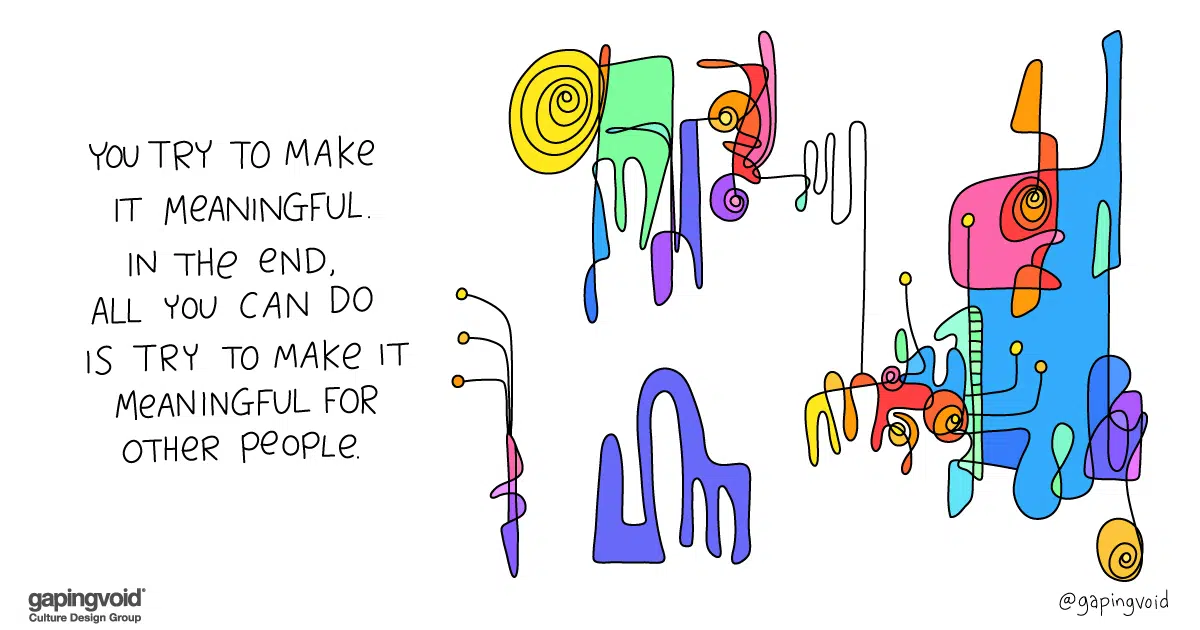 YOU TRY TO MAKE
IT MEANINGFUL.
IN THE END,
ALL YOU CAN DO
IS TRY TO MAKE IT
MEANINGFUL FOR
OTHER PEOPLE.
gapingvoid®
Culture Design Group
@gapingvoid